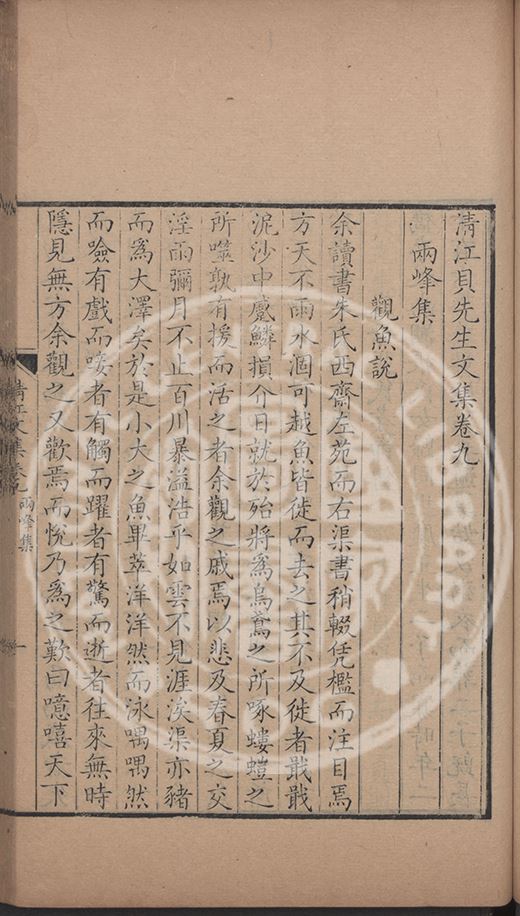 清江貝先生文集卷九
兩峰集
觀魚說
余讀書朱氏西齋左苑而右渠書稍輟凭檻而注目焉
方天不雨水涸可越魚皆徙而去之其不及徙者戢戢
泥沙中處鱗損介日就於殆將為烏鳶之所啄螻螘之
所噬孰有援而活之者余觀之戚焉以悲及春夏之交
淫雨彌月不止百川暴溢浩乎如雲不見涯涘渠亦豬
而為大澤矣於是小大之魚畢萃洋洋然而泳喁喁然
而噞有戲而唼者有觸而躍者有驚而逝者往來無時
隱見無方余觀之又歡焉而悅乃為之歎曰噫嘻天下
清江文集卷九 兩峰集 一